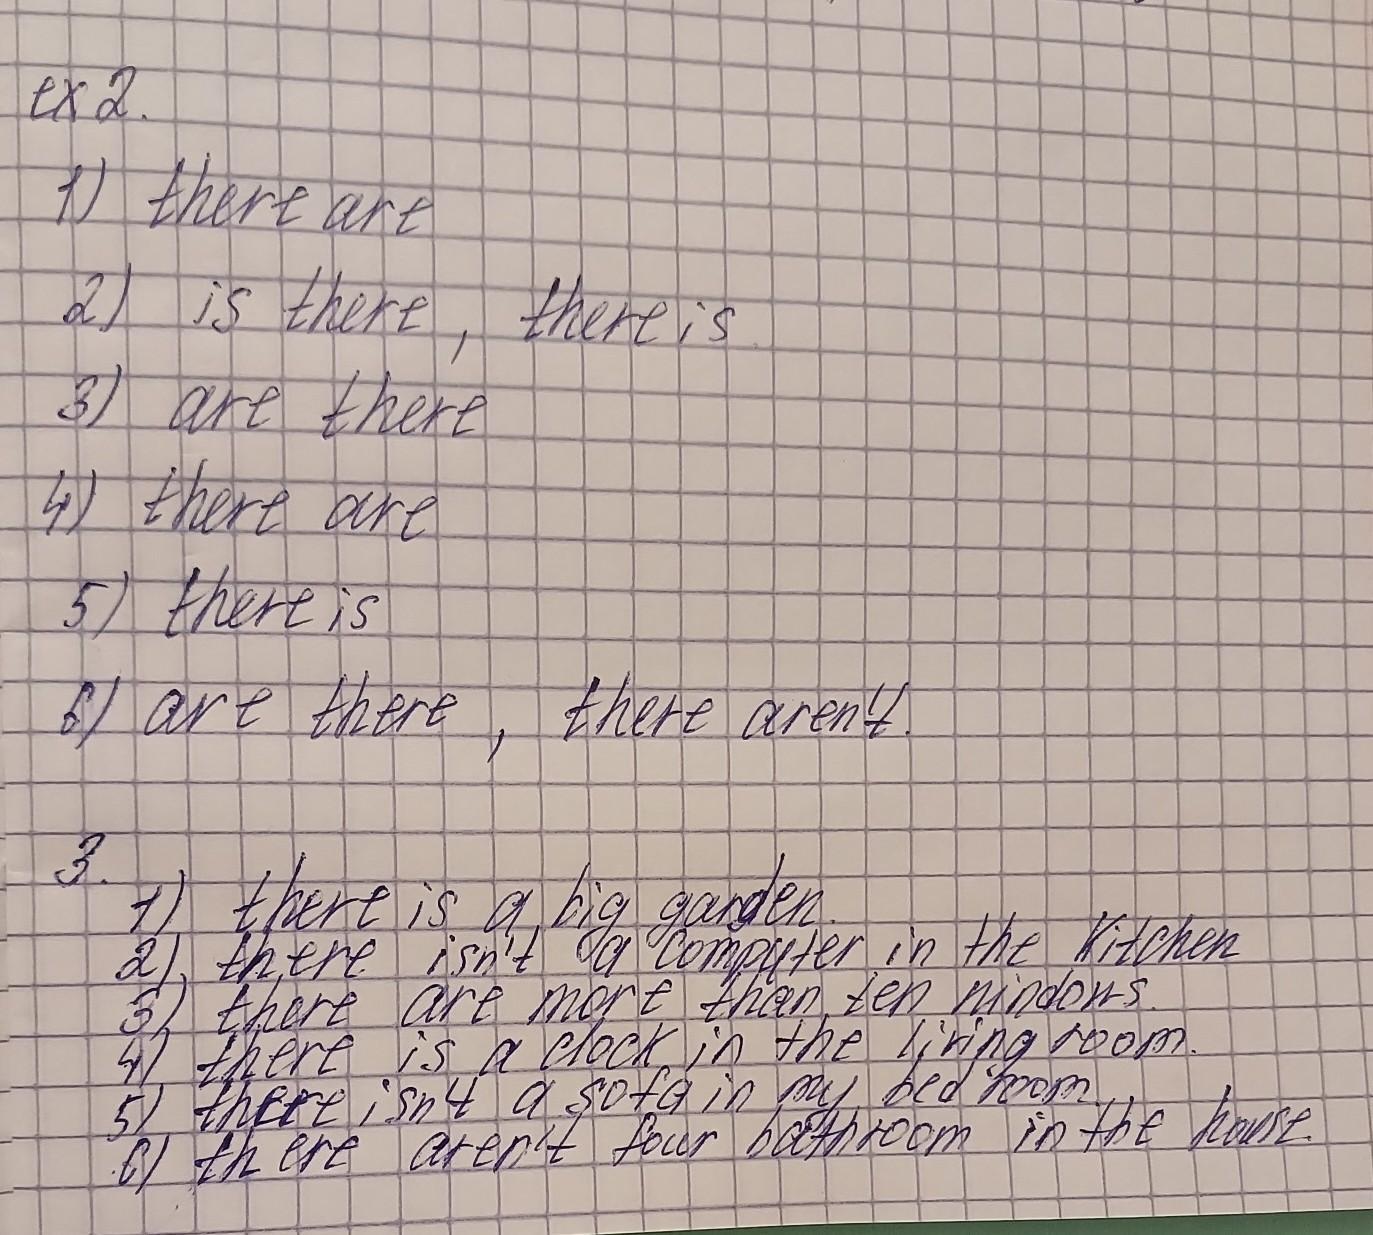 ex 2.
1) there are
2) is there, there is
3) are there
4) there are
5) there is
6) are there, there aren't.
3.
1) there is a big garden.
2) there isn't a computer in the kitchen
3) there are more than ten windows.
4) there is a clock in the living room.
5) there isn't a sofa in my bedroom.
6) there aren't four bathroom in the house.